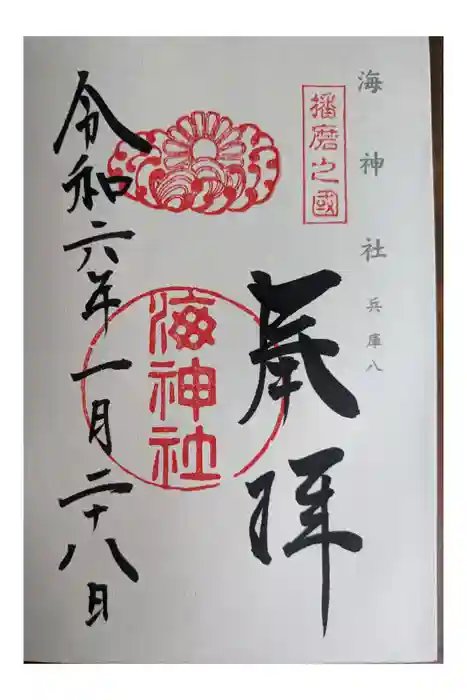 海神社 兵庫八
播磨之國
奉拝
海神社
令和六年一月二十八日